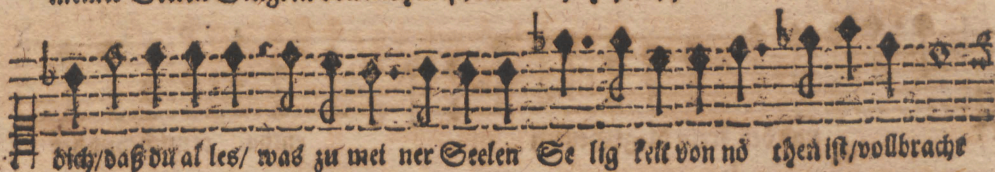 dich/daß du al les/ was zu mei ner Seelen Se lig keit von nö then ist/vollbracht